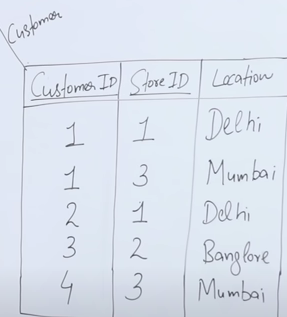 Customer
Customer ID Store ID Location
1 1 Delhi
1 3 Mumbai
2 1 Delhi
3 2 Banglore
4 3 Mumbai